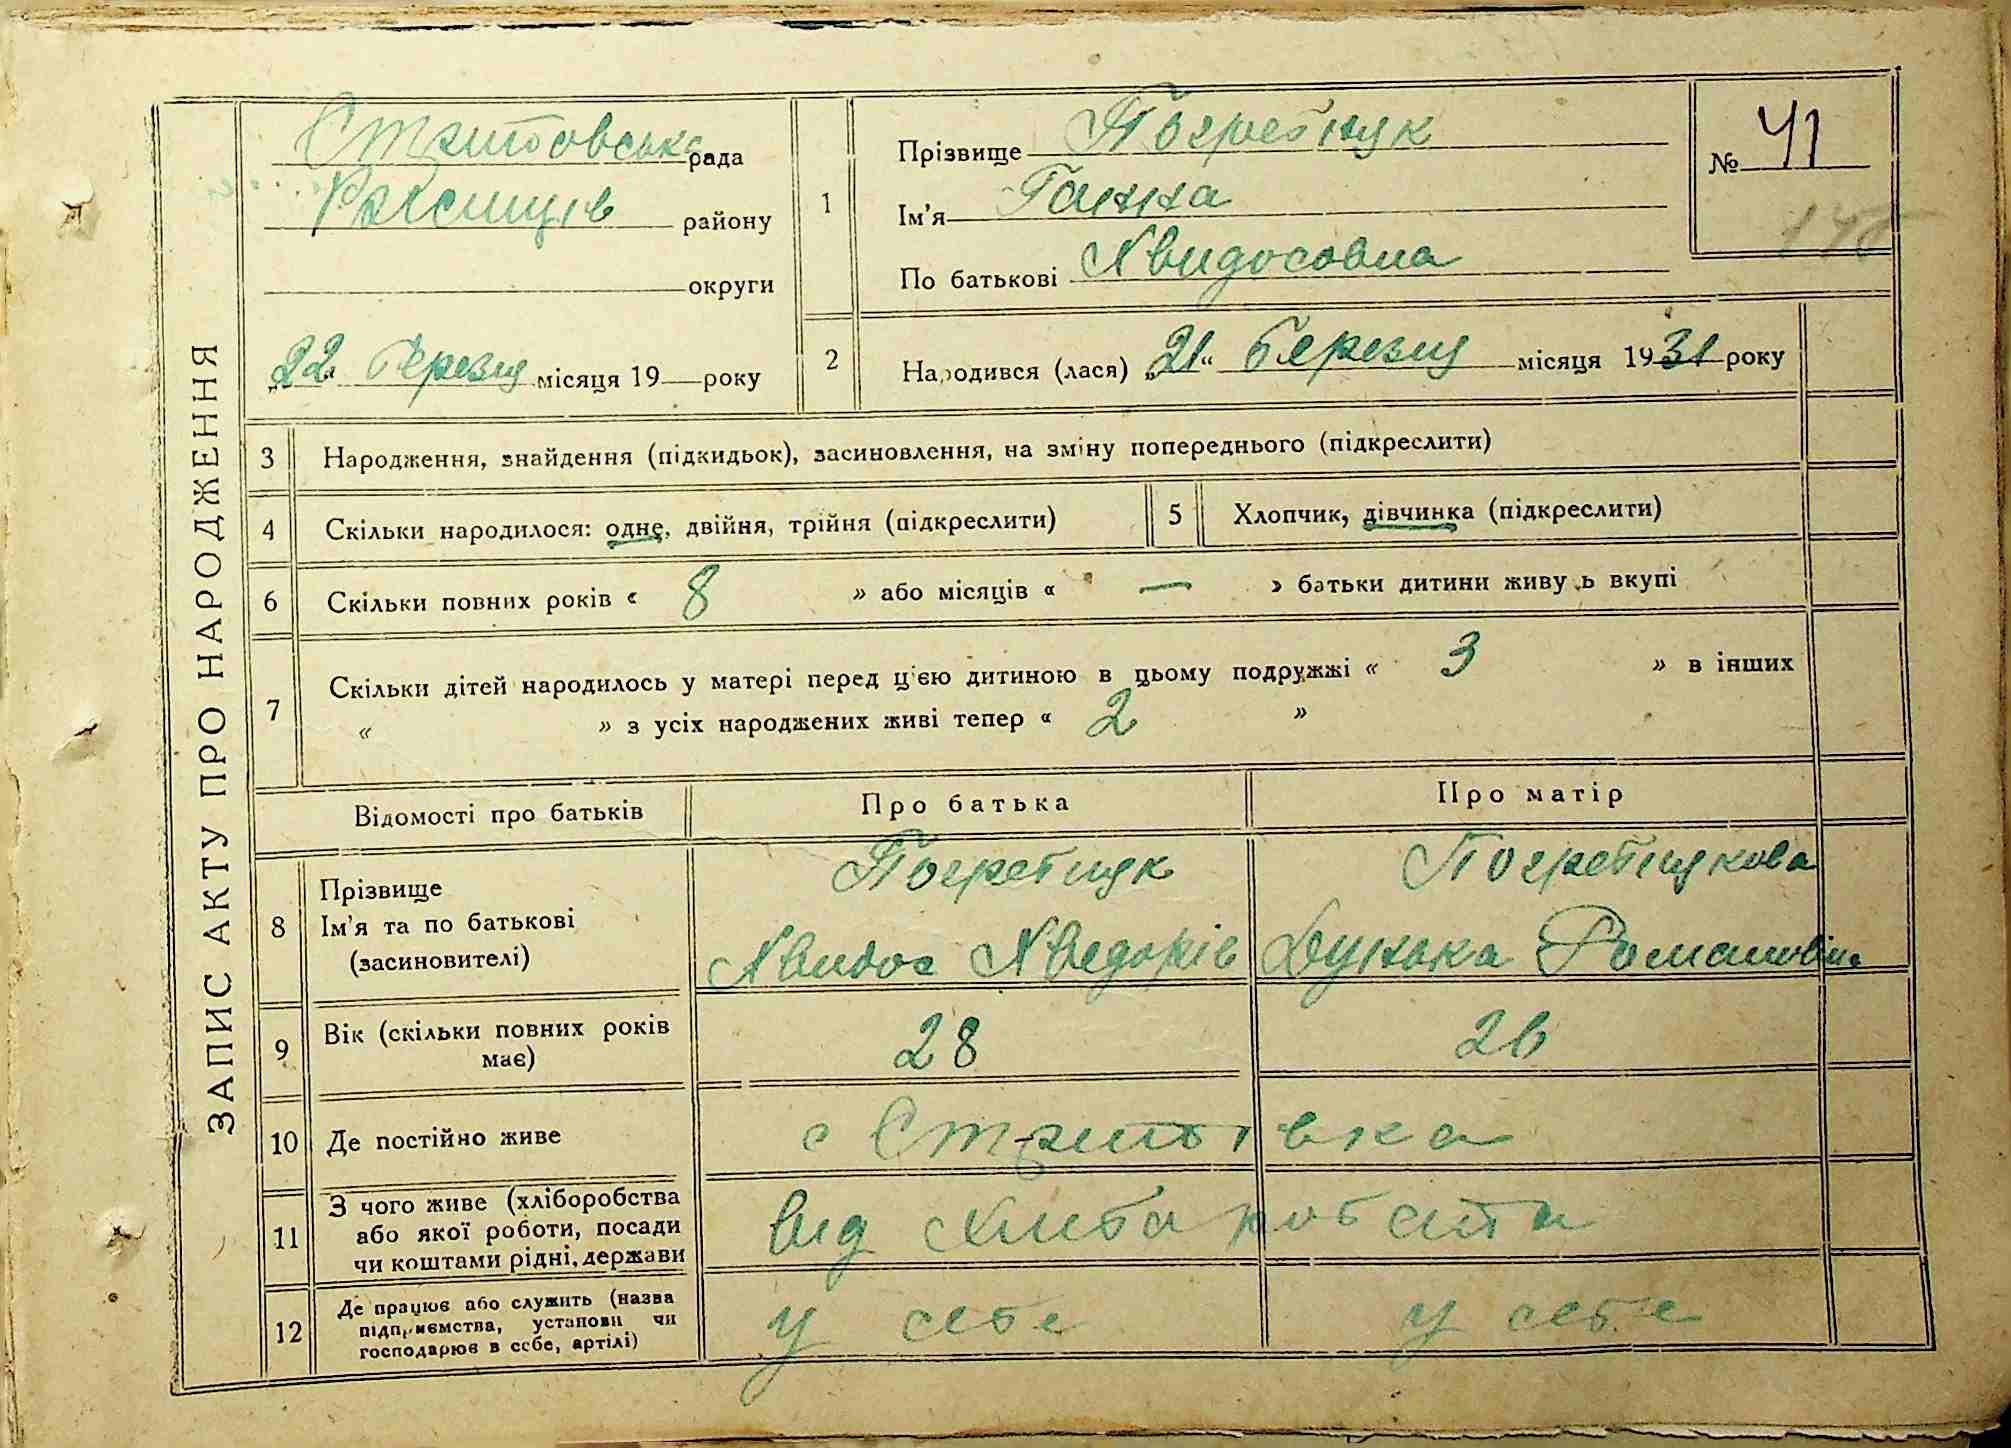 ЗАПИС АКТУ ПРО НАРОДЖЕННЯ
рада
району
округи
„22“ Березня місяця 19 року
1
Прізвище Погребнук
Ім'я Ганна
По батькові
№ 41
2
Народився (лася) „21“ Березня місяця 1931 року
3 Народження, знайдення (підкидьок), засиновлення, на зміну попереднього (підкреслити)
4 Скільки народилося: одне, двійня, трійня (підкреслити)
5 Хлопчик, дівчинка (підкреслити)
6 Скільки повних років « 8 » або місяців « — » батьки дитини живу ь вкупі
7 Скільки дітей народилось у матері перед ц'єю дитиною в цьому подружжі « 3 » в інших
« » з усіх народжених живі тепер « 2 »
Відомості про батьків
Про батька
Про матір
8 Прізвище
Ім'я та по батькові
(засиновителі)
Погребнук
Погребнукова
9 Вік (скільки повних років
має)
28
26
10 Де постійно живе
с
11 З чого живе (хліборобства
або якої роботи, посади
чи коштами рідні, держави
вид
12 Де працює або служить (назва
підприємства, установи чи
господарює в себе, артілі)
у себе
у себе